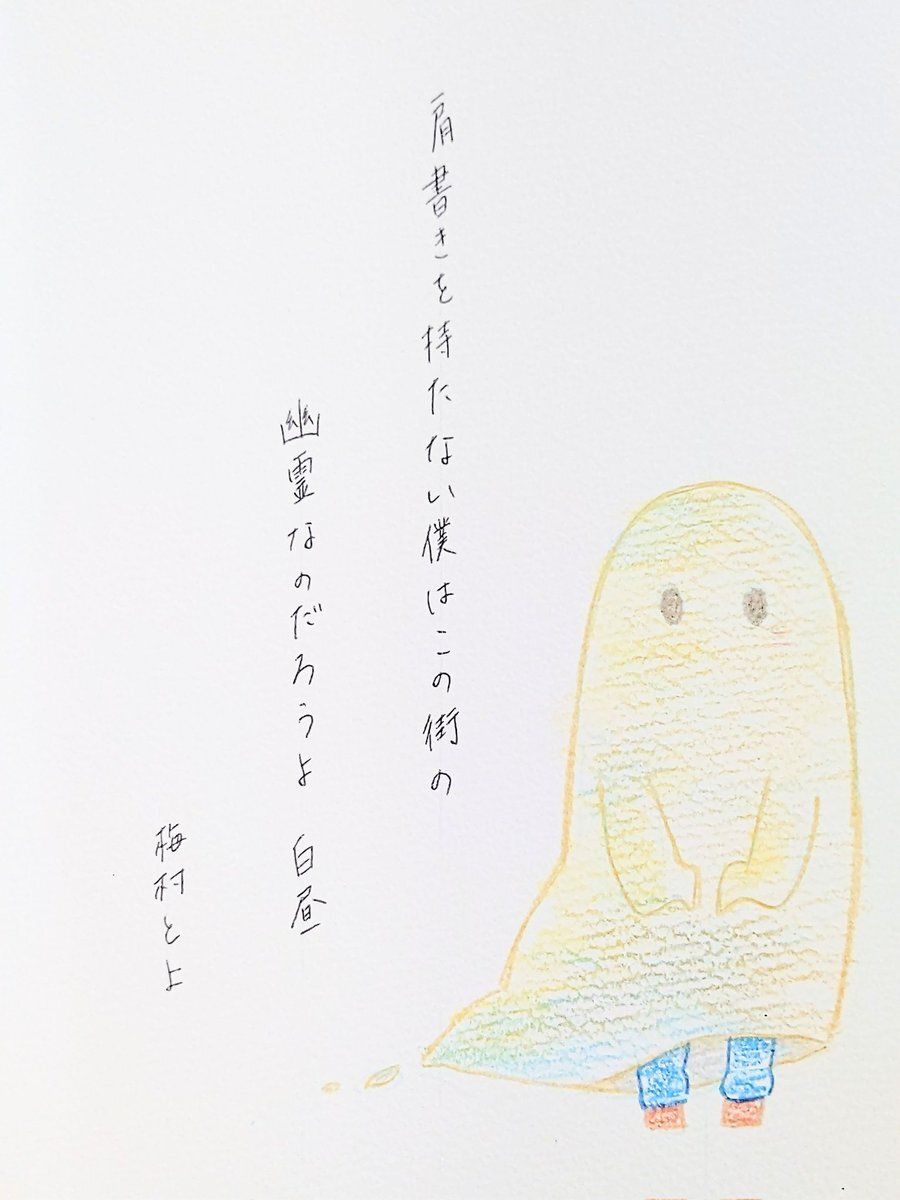 肩書きを持たない僕はこの街の
幽霊なのだろうよ　白昼
梅村とよ